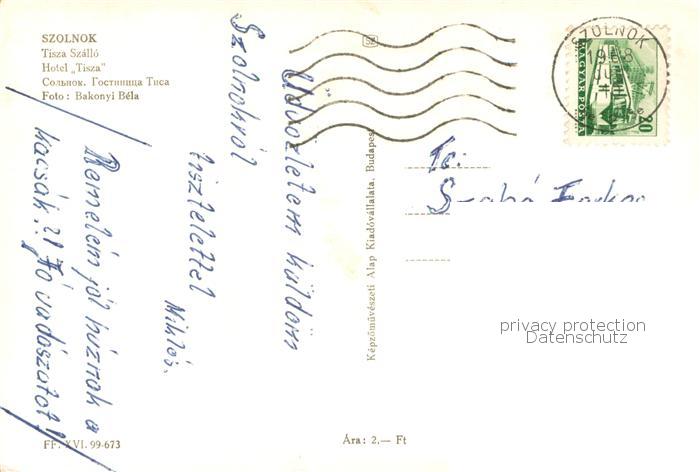 SZOLNOK
Tisza Szálló
Hotel „Tisza”
Сольнок. Гостиница Тиса
Foto : Bakonyi Béla
Üdvözletem küldöm
Szolnokról
tisztelettel
Miklós.
Remélem jól húznak a
kacsák?! Jó vadászatot!
FF. XVI. 99-673
Képzőművészeti Alap Kiadóvállalata, Budapest
Ára: 2,— Ft
SZ
SZOLNOK
1968
MAGYAR POSTA
Szabó
privacy protection
Datenschutz